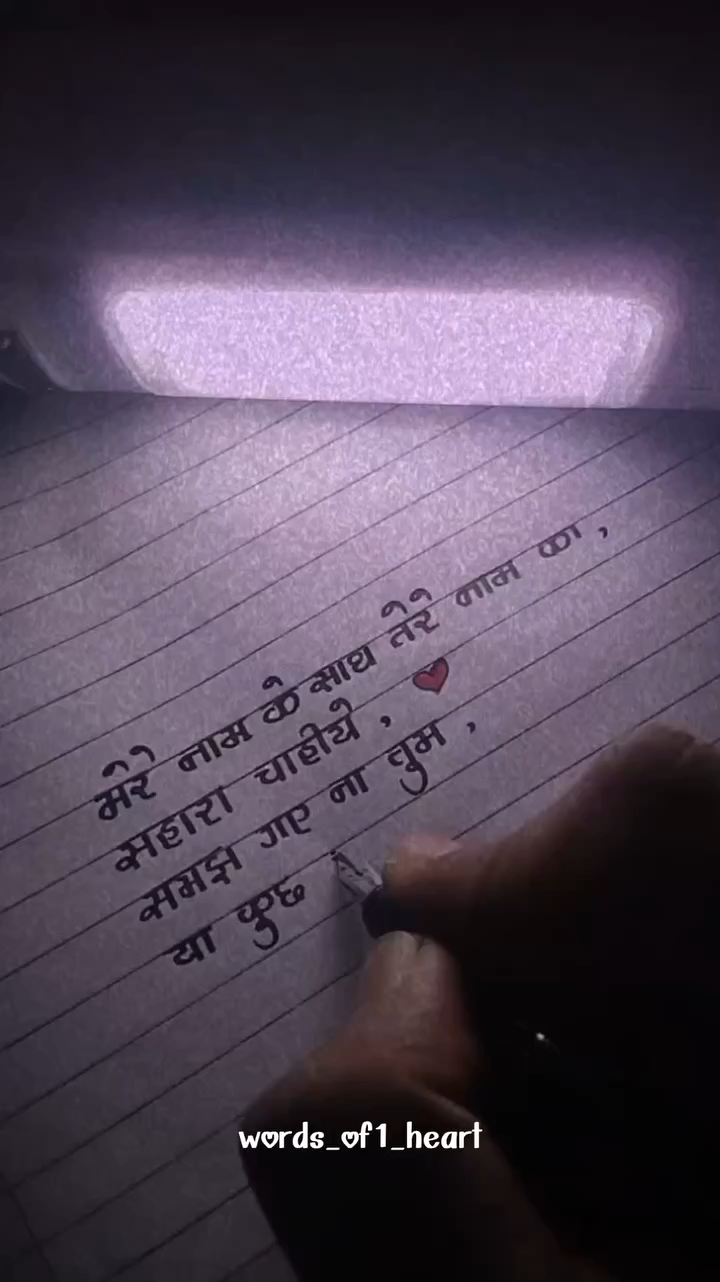 मेरे नाम के साथ तेरे नाम का ,
सहारा चाहीये ,
समझ गए ना तुम ,
या कुछ
words_of1_heart